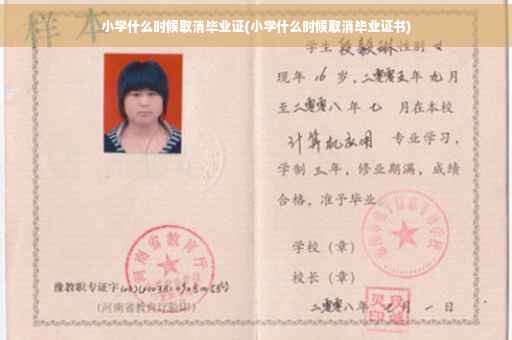 小学什么时候取消毕业证(小学什么时候取消毕业证书)
样本
学生 段毅琳 性别 女
现年 16 岁，二零零五年 九 月
至二零零八年 七 月在本校
计算机应用 专业学习，
学制 三 年，修业期满，成绩
合格，准予毕业
学校（章）
校长（章）
二零零八年 七 月 一 日
河南省教育厅
豫教职专证字
(河南省教育厅验印)